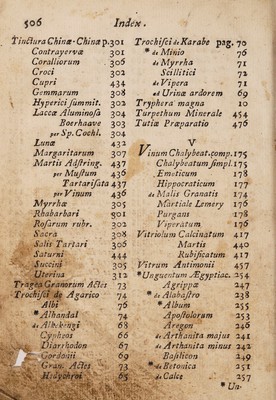 506 Index.
Tinctura Chinæ Chinæ p. 301
Contrayervæ 301
Coralliorum 306
Croci 302
Cupri 434
Gemmarum 308
Hyperici summit. 302
Laccæ Aluminosa 304
Boerhaave 303
per Sp. Cochl. 304
Lunæ 432
Margaritarum 307
Martis Adstring. 437
per Mustum 436
Tartarisata 437
per Vinum 436
Myrrhæ 305
Rhabarbari 501
Rosarum rubr. 302
Sacra 308
Salis Tartari 306
Saturni 444
Succini 305
Uterina 312
Tragea Granorum Actes 73
Trochisci de Agarico 74
Albi 76
*Alhandal 74
de Alkekengi 68
Cypheos 66
Diarrhodon 67
Gordonii 69
Gran. Actes 73
Hedychroi 65
Trochisci de Karabe pag. 70
* de Minio 76
de Myrrha 71
Scillitici 72
de Vipera 71
ad Urinæ ardorem 69
Tryphera magna 10
Turpethum Minerale 454
Tutiæ Præparatio 476
V
Vinum Chalybeat. comp. 175
Chalybeatum simpl. 175
Emeticum 178
Hippocraticum 177
de Malis Granatis 174
Martiale Lemery 176
Purgans 178
Viperatum 176
Vitriolum Calcinatum 417
Martis 440
Rubificatum 417
Vitrum Antimonii 457
*Unguentum Ægyptiac. 254
Agrippæ 247
* de Alabastro 238
*Album 255
Apostolorum 253
Aregon 246
de Arthanita majus 241
de Arthanita minus 242
Basilicon 249
* de Betonica 251
de Calce 257
* Un-